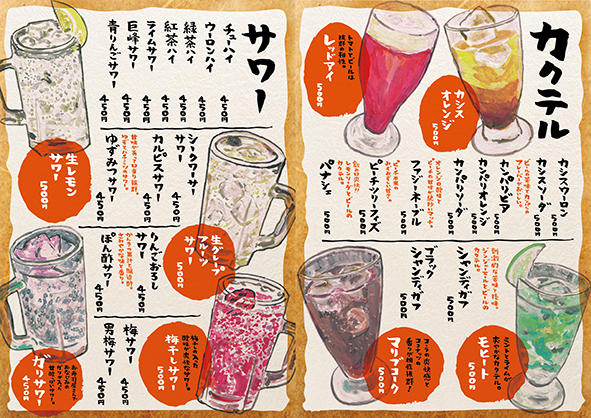 カクテル
カシス
オレンジ
500円
トマトとビールは
抜群の相性。
レッドアイ
500円
カシスウーロン
500円
カシスソーダ
500円
カンパリビア
500円
カンパリオレンジ
500円
カンパリソーダ
500円
ファジーネーブル
500円
ピーチツリーフィズ
500円
パナシェ
500円
シャンディガフ
500円
ブラック
シャンディガフ
500円
ミントとライムが
爽やかなカクテル。
モヒート
500円
コーラの爽快感と
ココナッツの
香りが相性抜群！
マリブコーク
500円
サワー
チューハイ
450円
ウーロンハイ
450円
緑茶ハイ
450円
紅茶ハイ
450円
ライムサワー
450円
巨峰サワー
450円
青りんごサワー
450円
生レモン
サワー
500円
シークワーサー
サワー
450円
カルピスサワー
450円
ゆずみつサワー
450円
生グレープ
フルーツ
サワー
500円
りんごおろし
サワー
450円
ぽん酢サワー
450円
梅サワー
450円
男梅サワー
450円
梅干しサワー
500円
ガリサワー
500円